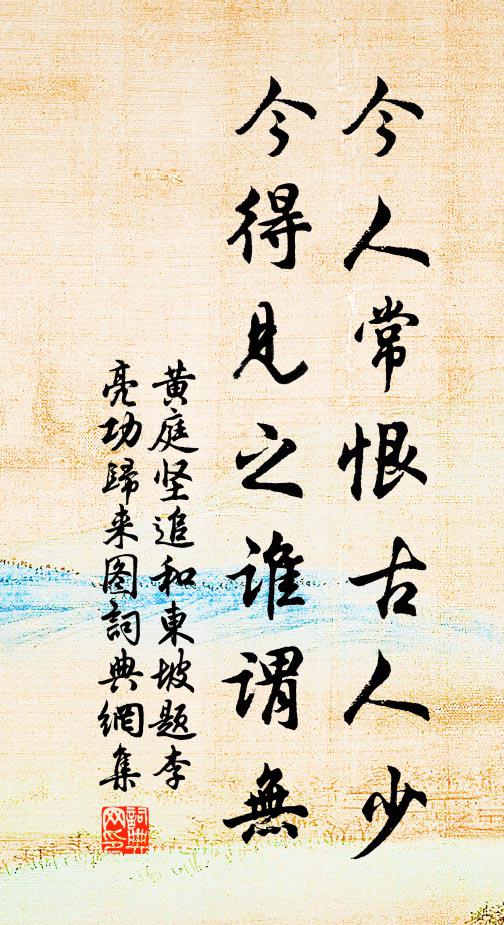 今人常恨古人少
今得見之誰謂無
黄庭坚追和東坡题李
亮功歸来图詞典網集
詞典
网印